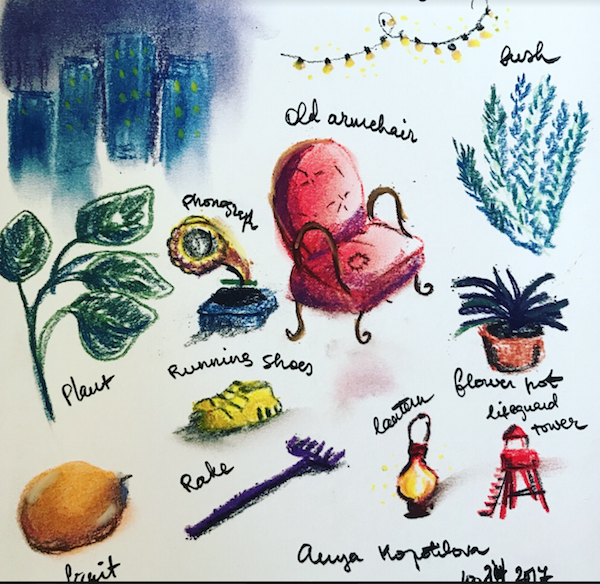 Bush
Old armchair
Phonograph
Running Shoes
Plant
flower pot
lifeguard
tower
lantern
Rake
fruit
Anya
2017